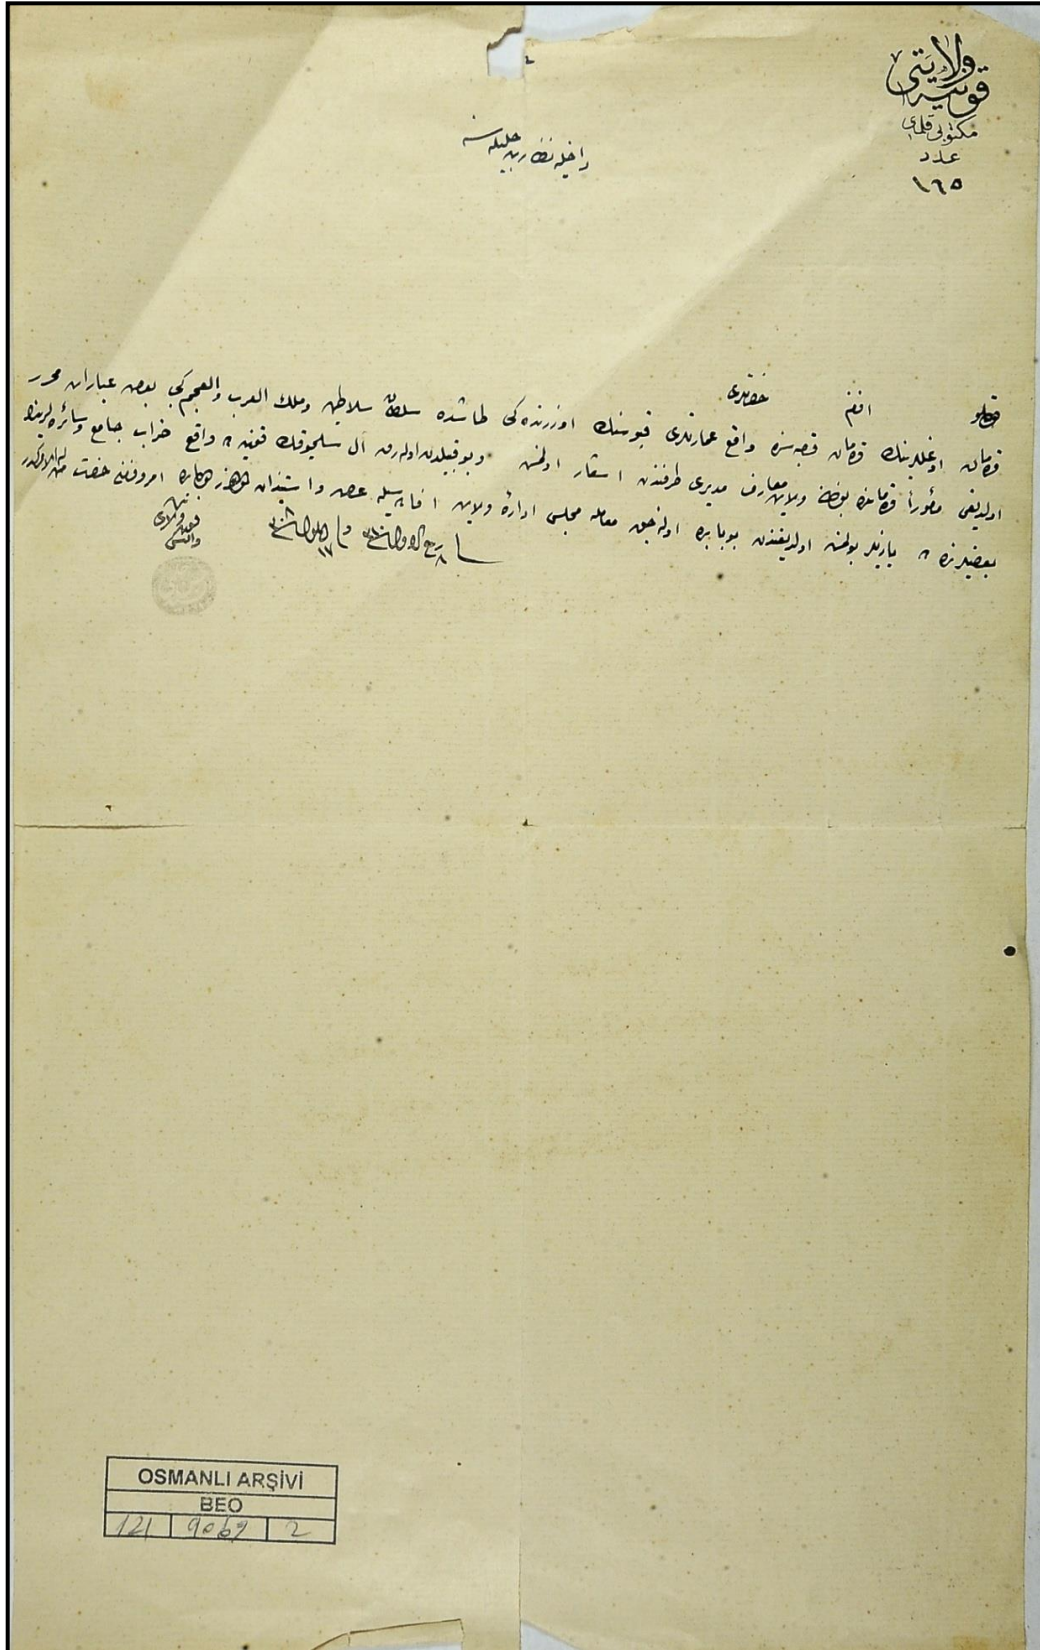 قونیه ولایتی
مكتوبی قلمی
عدد
١٦٥
داخلیه نظارت جلیله سنه
دولتلو افندم حضرتلری
قرمان اوغللرینك قرمان قصبه سنده واقع عمارتلری قپوسنك اوزرنده كی طاشده سلطان سلاطین وملك العرب والعجم كبی بعض عباران محرر
اولدیغی مأموراً قرمانده بولنان ولایت معارف مدیری طرفندن اشعار اولنمش وبو قبیلدن اوله رق آل سلجوقك قونیه ده واقع خراب جامع وسائره لرینك
بعضیلرنده ده یازیلر بولنمش اولدیغندن بوبابده اوله جق معامله مجلس اداره ولایت افاده سیله عرض واستیذان اولنور اولبابده امر وفرمان حضرت من له الامركدر
OSMANLI ARŞİVİ
BEO
121 9069 2